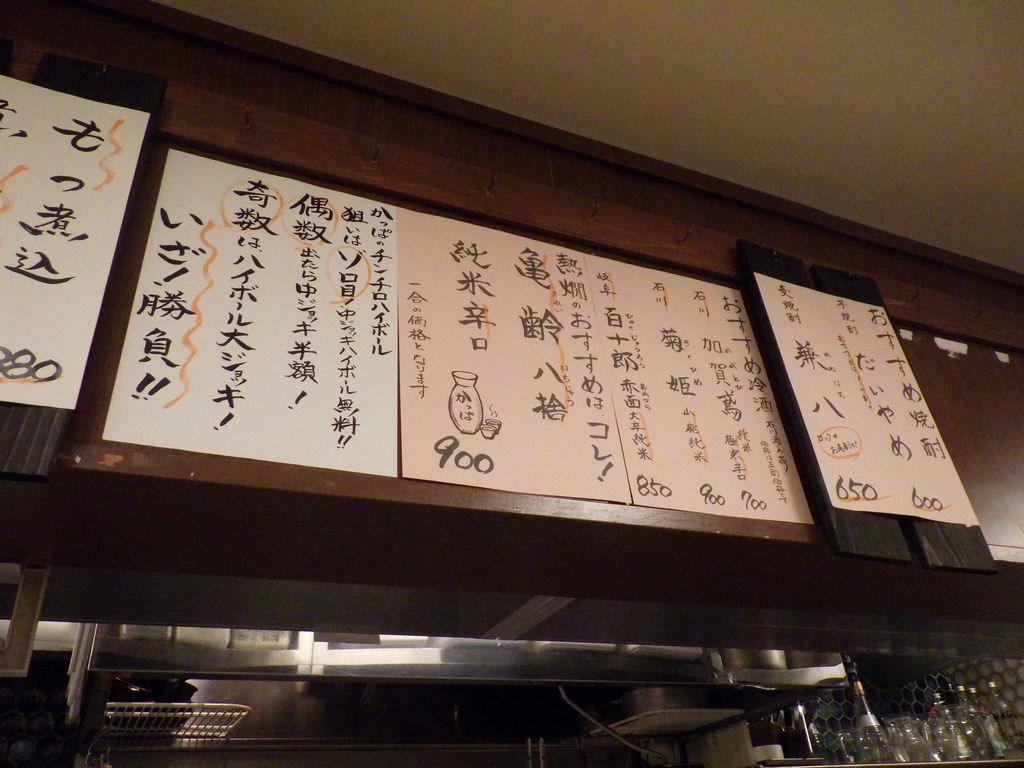 おすすめ焼酎
芋焼酎 だいやめ 600
麦焼酎 兼八 650
おすすめ冷酒
石川 加賀鳶 純米 極寒辛口 700
かがとび
石川 菊姫 山廃純米 900
きくひめ
岐阜 百十郎 赤面 大辛純米 850
ひゃくじゅうろう あかづら
熱燗のおすすめは コレ!
亀齢 八拾
きれい はちじゅう
純米辛口
かっぱ
900
一合の価格となります
かっぱのチンチロハイボール
狙いは、ゾロ目!中ジョッキハイボール無料!!
偶数 出たら中ジョッキ半額!
奇数は、ハイボール大ジョッキ!
いざ!勝負!!
もつ煮込
880